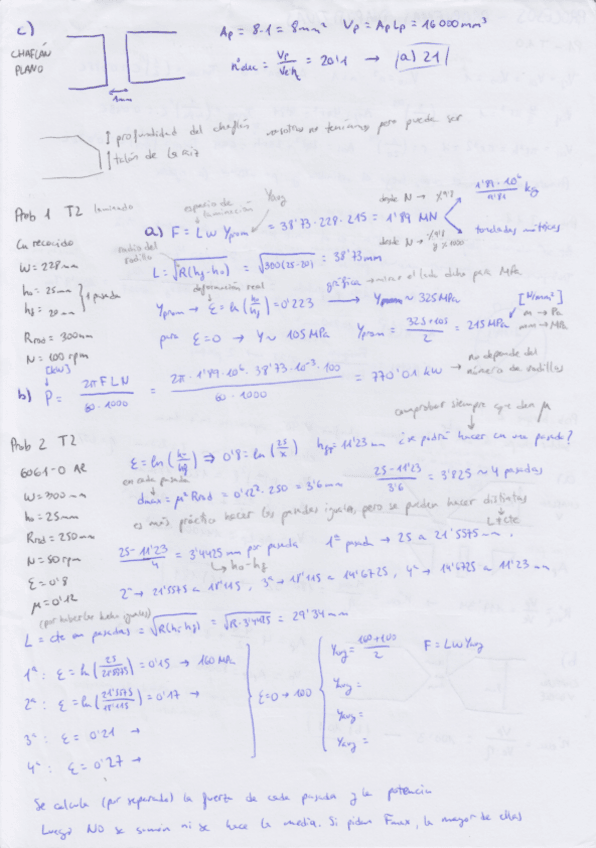 c)
CHAFLÁN
PLANO
1mm
Ap = 8·1 = 8mm² Vp = Ap Lp = 16000mm³
nº elec = Vp/Vek = 20'1 → (a) 21
profundidad del chaflán
talón de la raíz
Prob 1 T2 laminado
Cu recocido
W = 228mm
ho = 25mm
hf = 20mm
1 pasada
Rrod = 300mm
N = 100 rpm
espacio de laminación
Yavg
a) F = L W Yprom = 38'73·228·215 = 1'89 MN
desde N → x/9'8
1'89·10⁶/9'81 kg
toneladas métricas
radio del rodillo
L = √R(hf-ho) = √300(25-20) = 38'73mm
deformación real
Yprom → ε = ln(ho/hf) = 0'223 → Yprom ~ 325MPa
para ε=0 → Y ~ 105MPa Yprom = 325+105/2 = 215MPa
[N/mm²]
m → Pa
mm → MPa
[kW]
b) P = 2πFLN/60·1000 = 2π·1'89·10⁶·38'73·10⁻³·100/60·1000 = 770'01 kW → no depende del número de rodillos
comprobar siempre que den μ
Prob 2 T2
6061-0 Al
W = 300mm
ho = 25mm
Rrod = 250mm
N = 50rpm
ε = 0'8
μ = 0'12
ε = ln(ho/hf) ⇒ 0'8 = ln(25/x) hf = 11'23mm ¿se podrá hacer en una pasada?
en cada pasada
dmax = μ² Rrod = 0'12²·250 = 3'6mm 25-11'23/3'6 = 3'825 ~ 4 pasadas
es más práctico hacer las pasadas iguales, pero se pueden hacer distintas
L≠cte
25-11'23/4 = 3'4425mm por pasada 1ª pasada → 25 a 21'5575mm.
ho-hf
2ª → 21'5575 a 18'115, 3ª → 18'115 a 14'6725, 4ª → 14'6725 a 11'23mm
(por haberlas hecho iguales)
L = cte en pasadas = √R(hi-hf) = √R·3'4425 = 29'34mm
1ª: ε = ln(25/21'5575) = 0'15 → 160MPa
2ª: ε = ln(21'5575/18'115) = 0'17 →
3ª: ε = 0'21 →
4ª: ε = 0'27 →
ε=0 → 100
Yavg = 160+100/2 F = LWYavg
Yavg =
Yavg =
Yavg =
Se calcula (por separado) la fuerza de cada pasada y la potencia
Luego NO se suman ni se hace la media. Si piden Fmax, la mayor de ellas